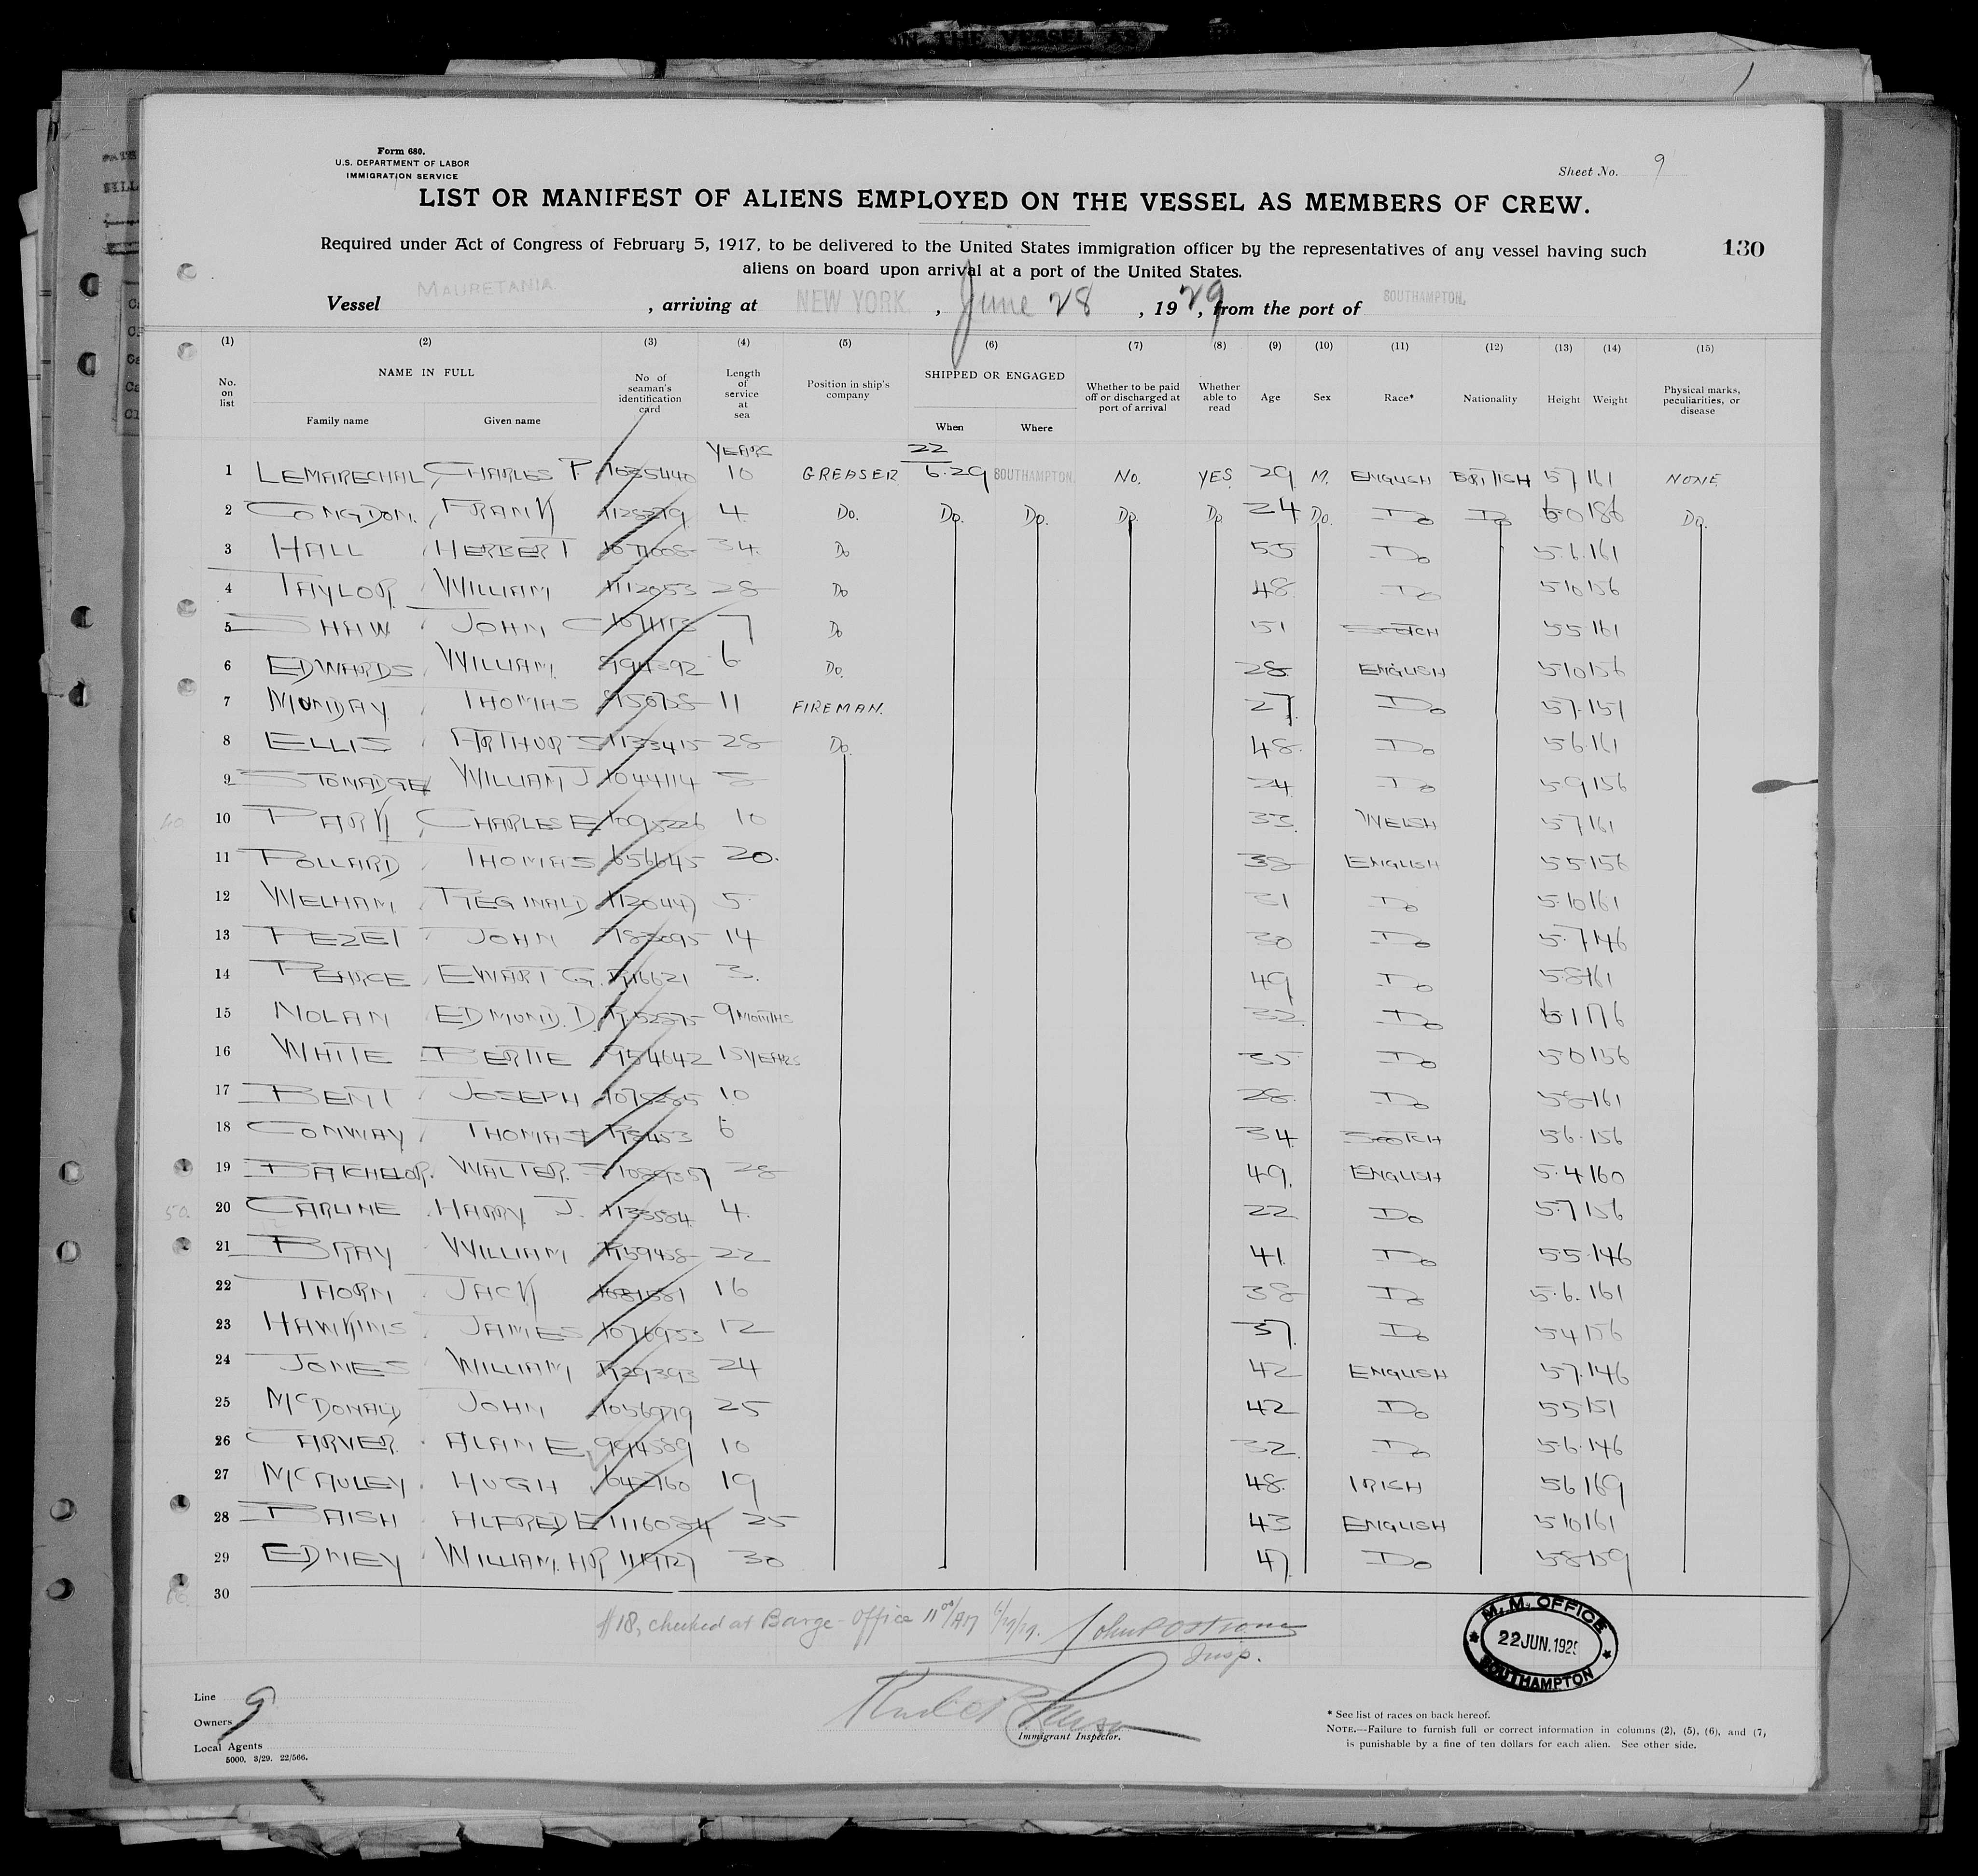 Form 680.
U.S. DEPARTMENT OF LABOR
IMMIGRATION SERVICE
Sheet No. 9
LIST OR MANIFEST OF ALIENS EMPLOYED ON THE VESSEL AS MEMBERS OF CREW.
Required under Act of Congress of February 5, 1917, to be delivered to the United States immigration officer by the representatives of any vessel having such
130
aliens on board upon arrival at a port of the United States.
Vessel MAURETANIA. , arriving at NEW YORK , June 28 , 1929, from the port of SOUTHAMPTON.
(1) (2) (3) (4) (5) (6) (7) (8) (9) (10) (11) (12) (13) (14) (15)
No. on list NAME IN FULL Family name Given name No of seaman's identification card Length of service at sea Position in ship's company SHIPPED OR ENGAGED When Where Whether to be paid off or discharged at port of arrival Whether able to read Age Sex Race* Nationality Height Weight Physical marks, peculiarities, or disease
YEARS 22
1 LEMARECHAL, CHARLES P. 10 GREASER 6.29 SOUTHAMPTON. NO. YES 29 M. ENGLISH BRITISH 57 161 NONE
2 CONGDON, FRANK 4. Do. Do. Do. Do. Do 24 Do. Do Do 60 186 Do.
3 HALL HERBERT 34. Do 55 Do 5.6 161
4 TAYLOR WILLIAM 1112053 28 Do 48 Do 510 156
5 SHAW JOHN C 7 Do 51 SCOTCH 55 161
6 EDWARDS WILLIAM. 6 Do. 28 ENGLISH 510 156
7 MUNDAY THOMAS 11 FIREMAN. 27. Do 57. 151
8 ELLIS ARTHUR S 1133415 28 Do. 48. Do 56. 161
9 STONADGE WILLIAM J. 1044114 24 Do 59 156
10 PARK CHARLES E 1095226 10 33. WELSH 57 161
11 POLLARD THOMAS 656645 20. 38 ENGLISH 55 156
12 WELHAM REGINALD 5 31 Do 5.10 161
13 PEZET JOHN 14 30 Do 5.7 146
14 PEARCE EWART G. 3. 49 Do 58 161
15 NOLAN EDMUND. D. 9 MONTHS 32 Do 61 176
16 WHITE BERTIE 954642 15 YEARS 35 Do 50 156
17 BENT JOSEPH 10 28 Do 58 161
18 CONWAY THOMAS 6 34. SCOTCH 56. 156
19 BATCHELOR. WALTER. 28 49. ENGLISH 5.4 160
20 CARLINE HARRY J. 4. 22 Do 57 156
21 BRAY WILLIAM 22 41. Do 55. 146
22 THORN JACK 16 38 Do 5.6. 161
23 HAWKINS JAMES 1076953 12 37. Do 54 156
24 JONES WILLIAM R29393 24 42 ENGLISH 57. 146
25 MCDONALD JOHN 25 42 Do 55 151
26 CARVER. ALAN E. 994589 10 32 Do 56. 146
27 MCAULEY. HUGH 642760 19 48. IRISH 56 169
28 BAISH ALFRED E 1116084 25 43 ENGLISH 510 161
29 EDNEY WILLIAM. HR 30 47. Do 58 159
30
#18, checked at Barge-Office 11 00/AM
Insp.
M. M. OFFICE
22 JUN. 1929
SOUTHAMPTON
Line 9
Owners
Local Agents
5000. 3/29. 22/566.
Immigrant Inspector.
* See list of races on back hereof.
NOTE.—Failure to furnish full or correct information in columns (2), (5), (6), and (7,
is punishable by a fine of ten dollars for each alien. See other side.